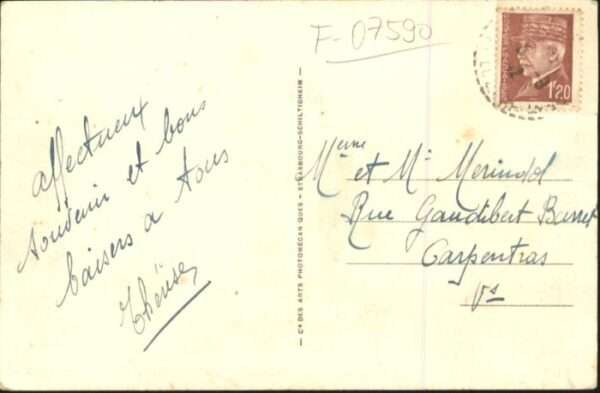 affectueux
souvenir et bons
baisers à tous
Thérèse
F-07590
1F20
Mme et Mr Merindol
Rue Gaudibert Barret
Carpentras
Vse
— Cie DES ARTS PHOTOMÉCANIQUES — STRASBOURG-SCHILTIGHEIM —